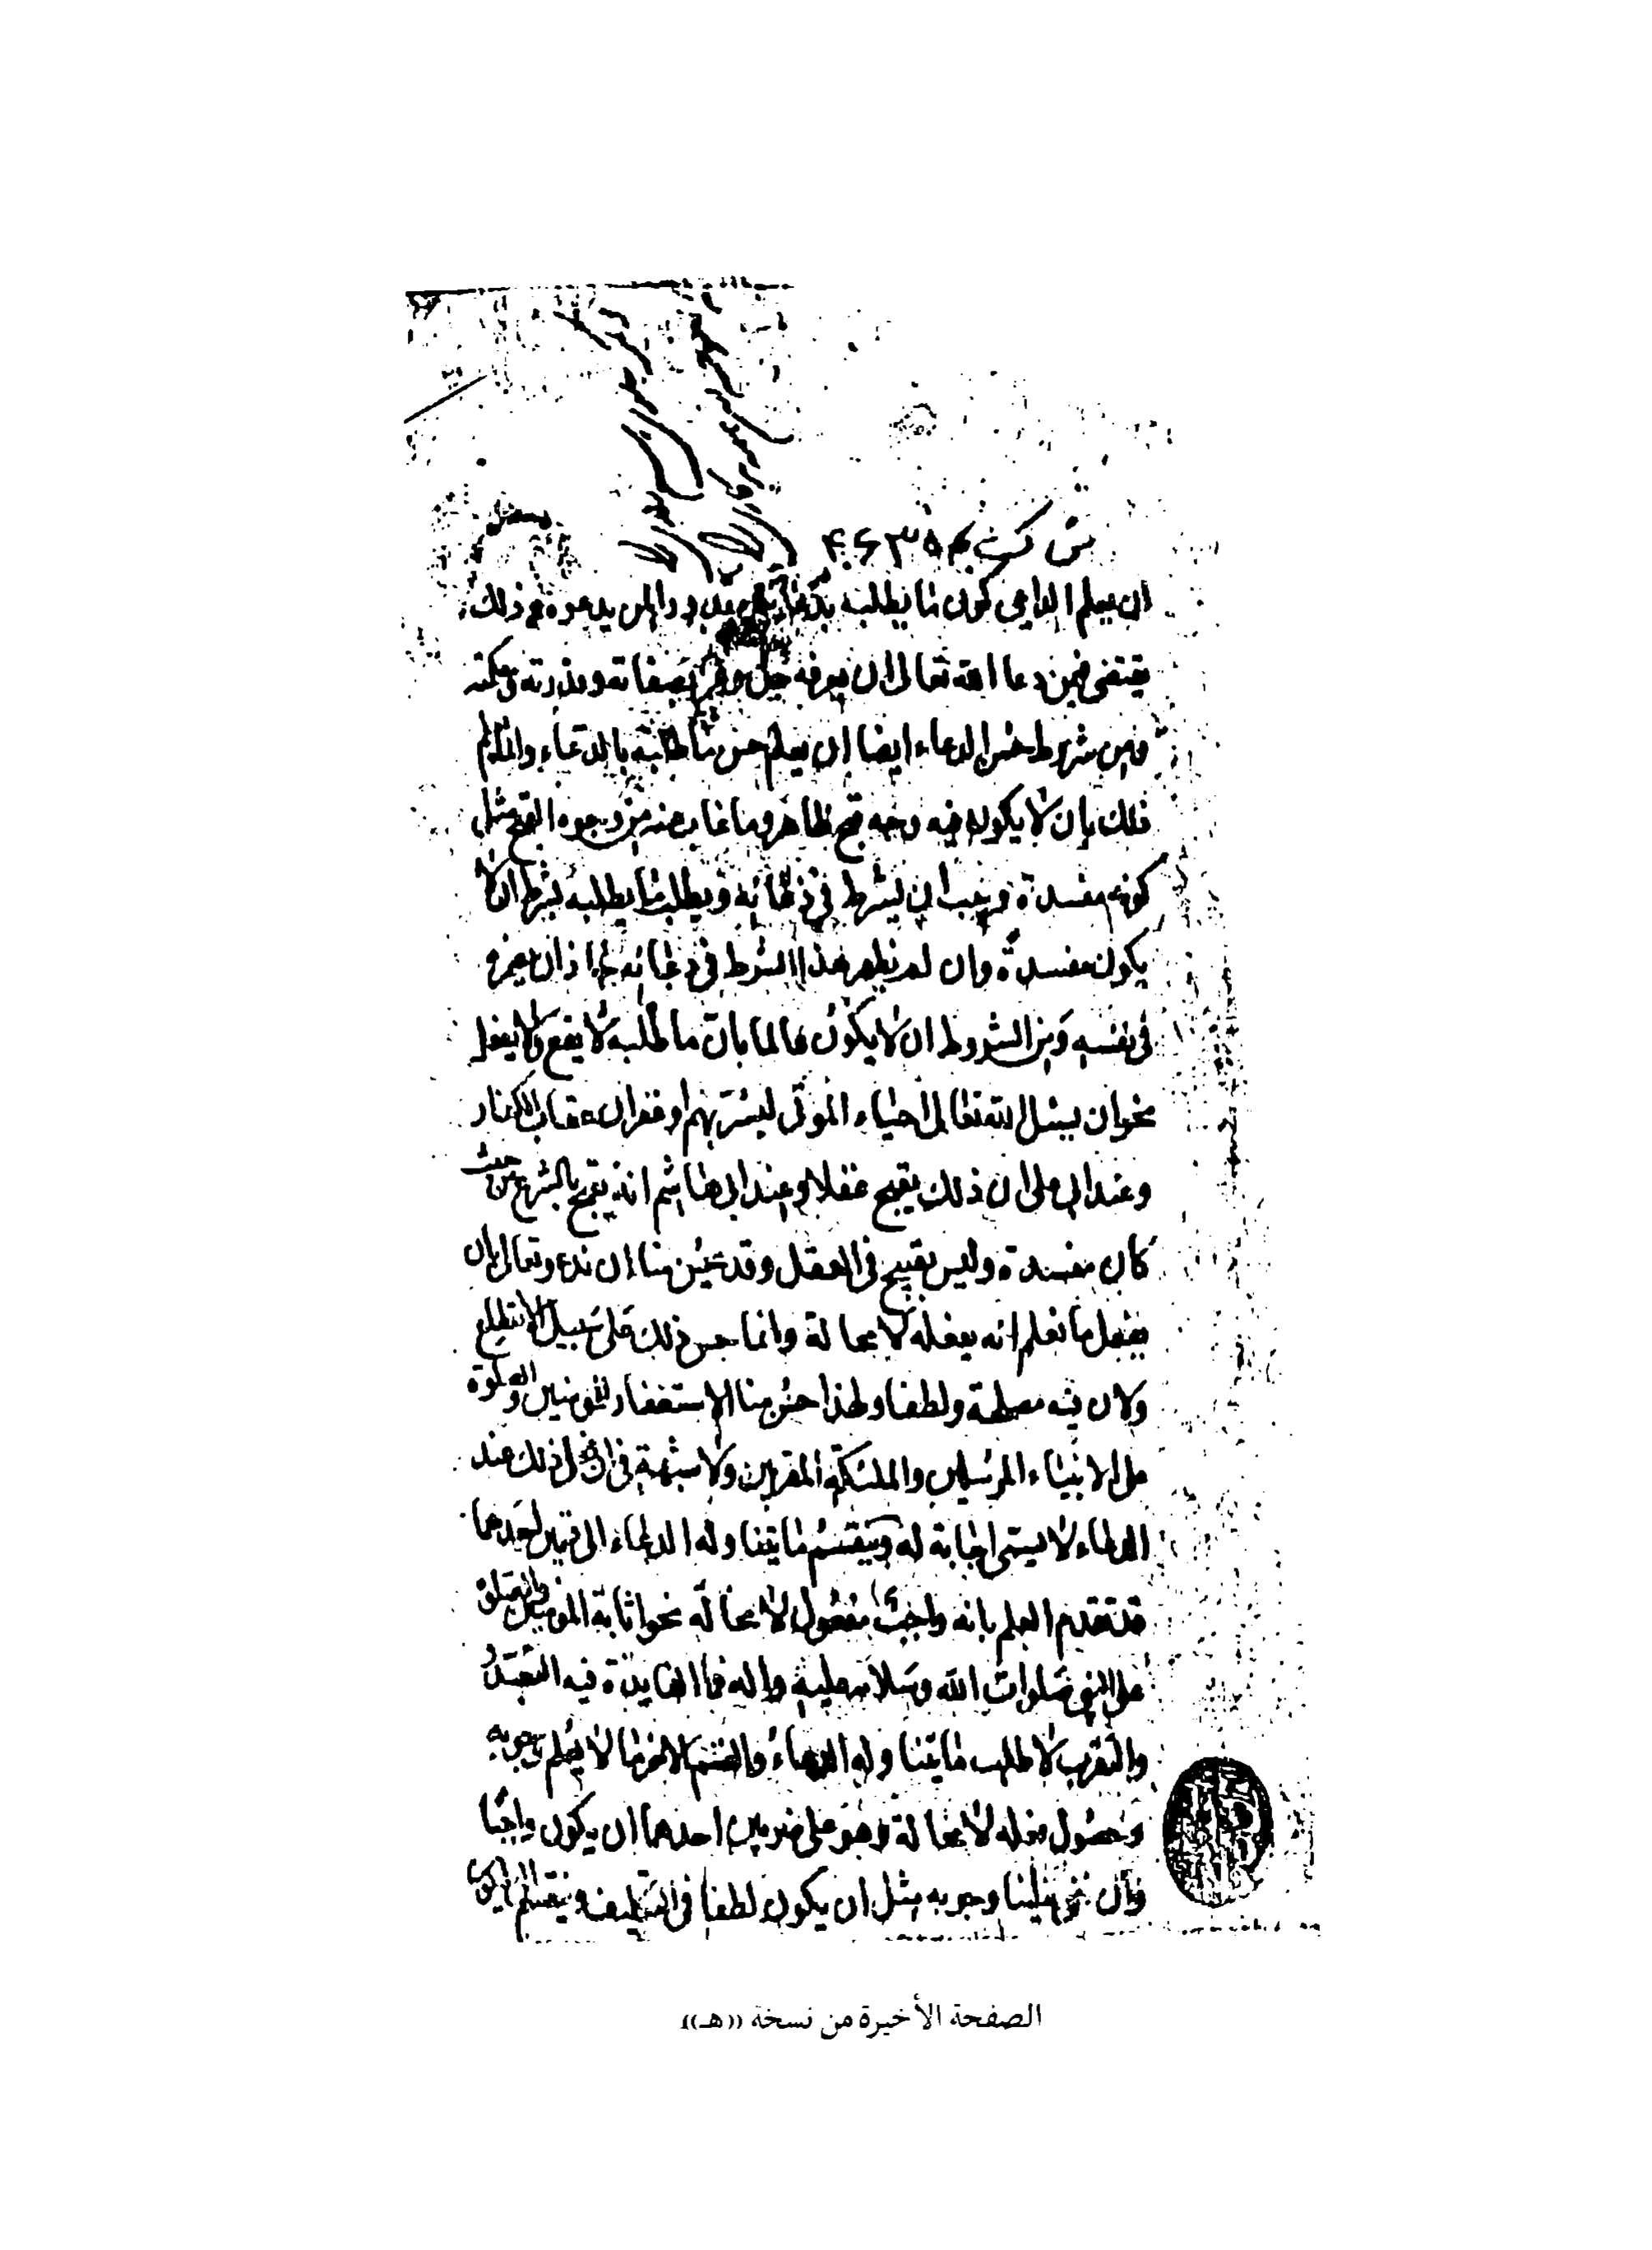 ان يعلم الداعي كون ما يطلبه بدعائه مقدورا لمن يدعوه وذلك
يقتضي فيمن دعا الله تعالى ان يعرفه بصفاته وقدرته وحكمته
ومن شروط حسن الدعاء ايضا ان يعلم حسن ما طلبه بالدعاء وانما يعلم
ذلك بان لا يكون فيه وجه قبح ظاهر وما غاب عنه من وجوه القبح مثل
كونه مفسدة وجب ان يشرط في دعائه ويطلب ما يطلبه بشرط ان لا
يكون مفسدة وان لم يظهر هذا الشرط في دعائه جاز ان يضمره
في نفسه ومن الشروط ان لا يكون عالما بان ما طلبه لا يقع ولا يفعل
نحو ان يسئل الله تعالى احياء الموتى ليسر بهم او غفران عقاب الكفار
وعند ابي علي ان ذلك يقبح عقلا وعند ابي هاشم انه يقبح بالشرع من حيث
كان مفسدة وليس بقبيح في العقل وقد حسن منا ان ندعو تعالى بان
يفعل ما نعلم انه يفعله لا محالة وانما حسن ذلك على سبيل الانقطاع
ولان فيه مصلحة ولطفا ولهذا حسن منا الاستغفار للمؤمنين والصلوة
على الانبياء المرسلين والملئكة المقربين ولا شبهة في ان فعل ذلك عند
الدعاء لا يسمى اجابة له وينقسم ما يتناوله الدعاء الى قسمين احدهما
قد تقدم العلم بانه واجب مفعول لا محالة نحو اثابة المؤمنين والصلوة
على النبي صلوات الله وسلامه عليه واله فما الفايدة فيه التعبد
والتقرب لا طلب ما يتناوله الدعاء والقسم الاخر ما لا يعلم وجوبه
وحصول فعله لا محالة وهو على ضربين احدهما ان يكون واجبا
وان خفي علينا وجوبه مثل ان يكون لطفا في التكليف وينقسم الى
الصفحة الأخيرة من نسخة «هـ»